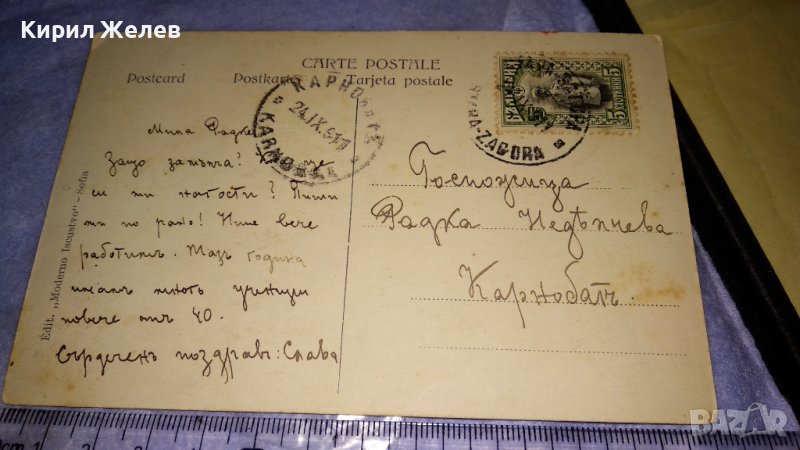 Кирил Желев
CARTE POSTALE
Postcard Postkarte Tarjeta postale
КАРНОБАТЪ
24.IX.
KARNOBAT
STARA-ZAGORA
5 5
Мила Радке
Защо замълча?
си ми
ми по рано! Ние вече
работимъ. Тазъ година
имамъ много ученици
повече отъ 40.
Сърдеченъ поздравъ: Слава
Госпожица
Радка Недѣлчева
Карнобатъ.
Édit. „Moderno Iscustvo" – Sofia
0cm 1 2 3 4 5 6 7 8
BAZAR
bazar.bg